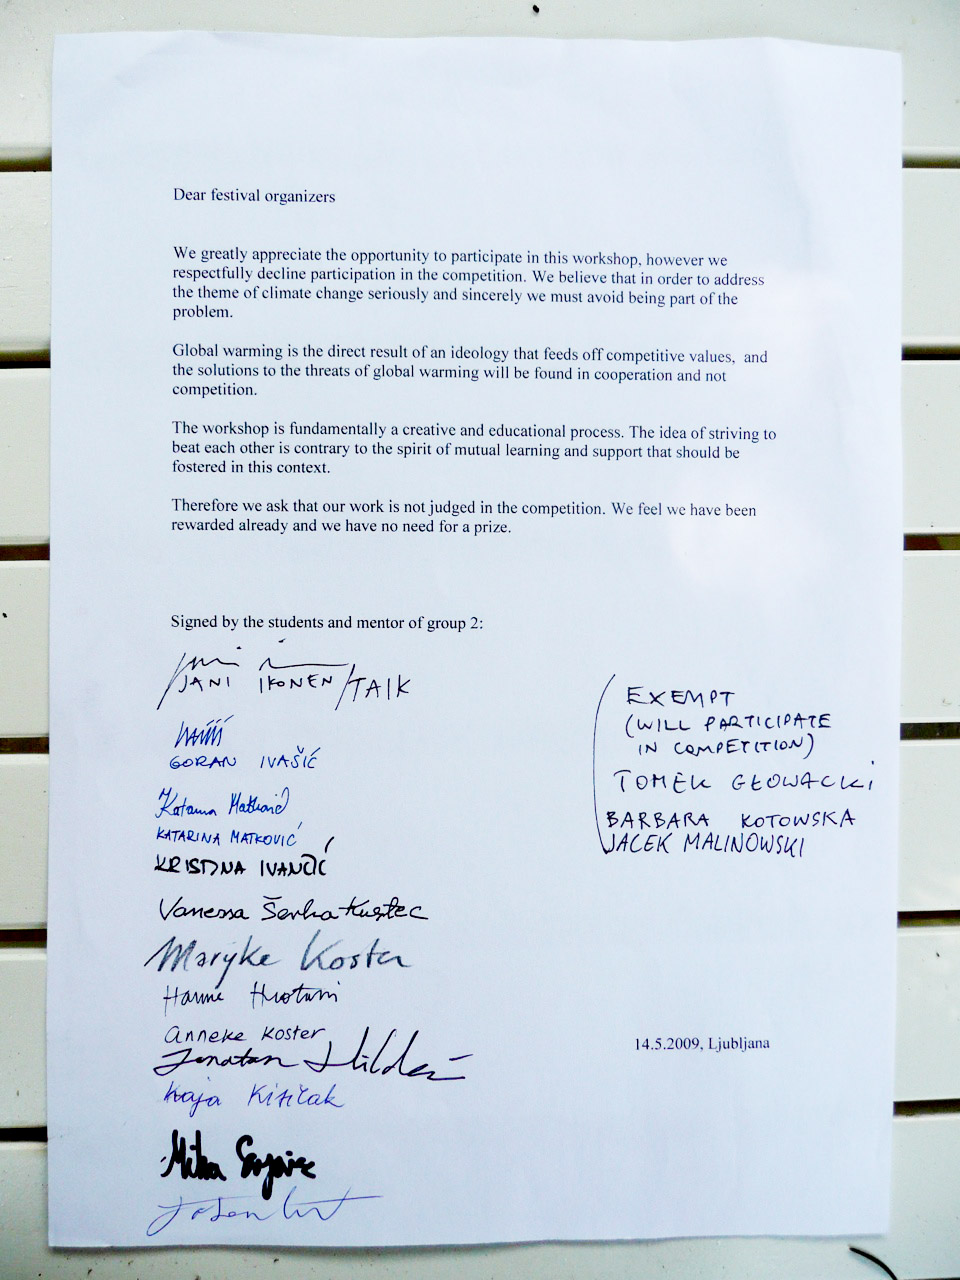 Dear festival organizers
We greatly appreciate the opportunity to participate in this workshop, however we
respectfully decline participation in the competition. We believe that in order to address
the theme of climate change seriously and sincerely we must avoid being part of the
problem.
Global warming is the direct result of an ideology that feeds off competitive values, and
the solutions to the threats of global warming will be found in cooperation and not
competition.
The workshop is fundamentally a creative and educational process. The idea of striving to
beat each other is contrary to the spirit of mutual learning and support that should be
fostered in this context.
Therefore we ask that our work is not judged in the competition. We feel we have been
rewarded already and we have no need for a prize.
Signed by the students and mentor of group 2:
JANI IKONEN/TAIK
GORAN IVAŠIĆ
Katarina Matković
KATARINA MATKOVIĆ
KRISTINA IVANČIĆ
Vanessa
Marijke Koster
Hanne
anneke koster
Jonatan
Kaja Kisilak
Mika
EXEMPT
(WILL PARTICIPATE
IN COMPETITION)
TOMEK GŁOWACKI
BARBARA KOTOWSKA
JACEK MALINOWSKI
14.5.2009, Ljubljana